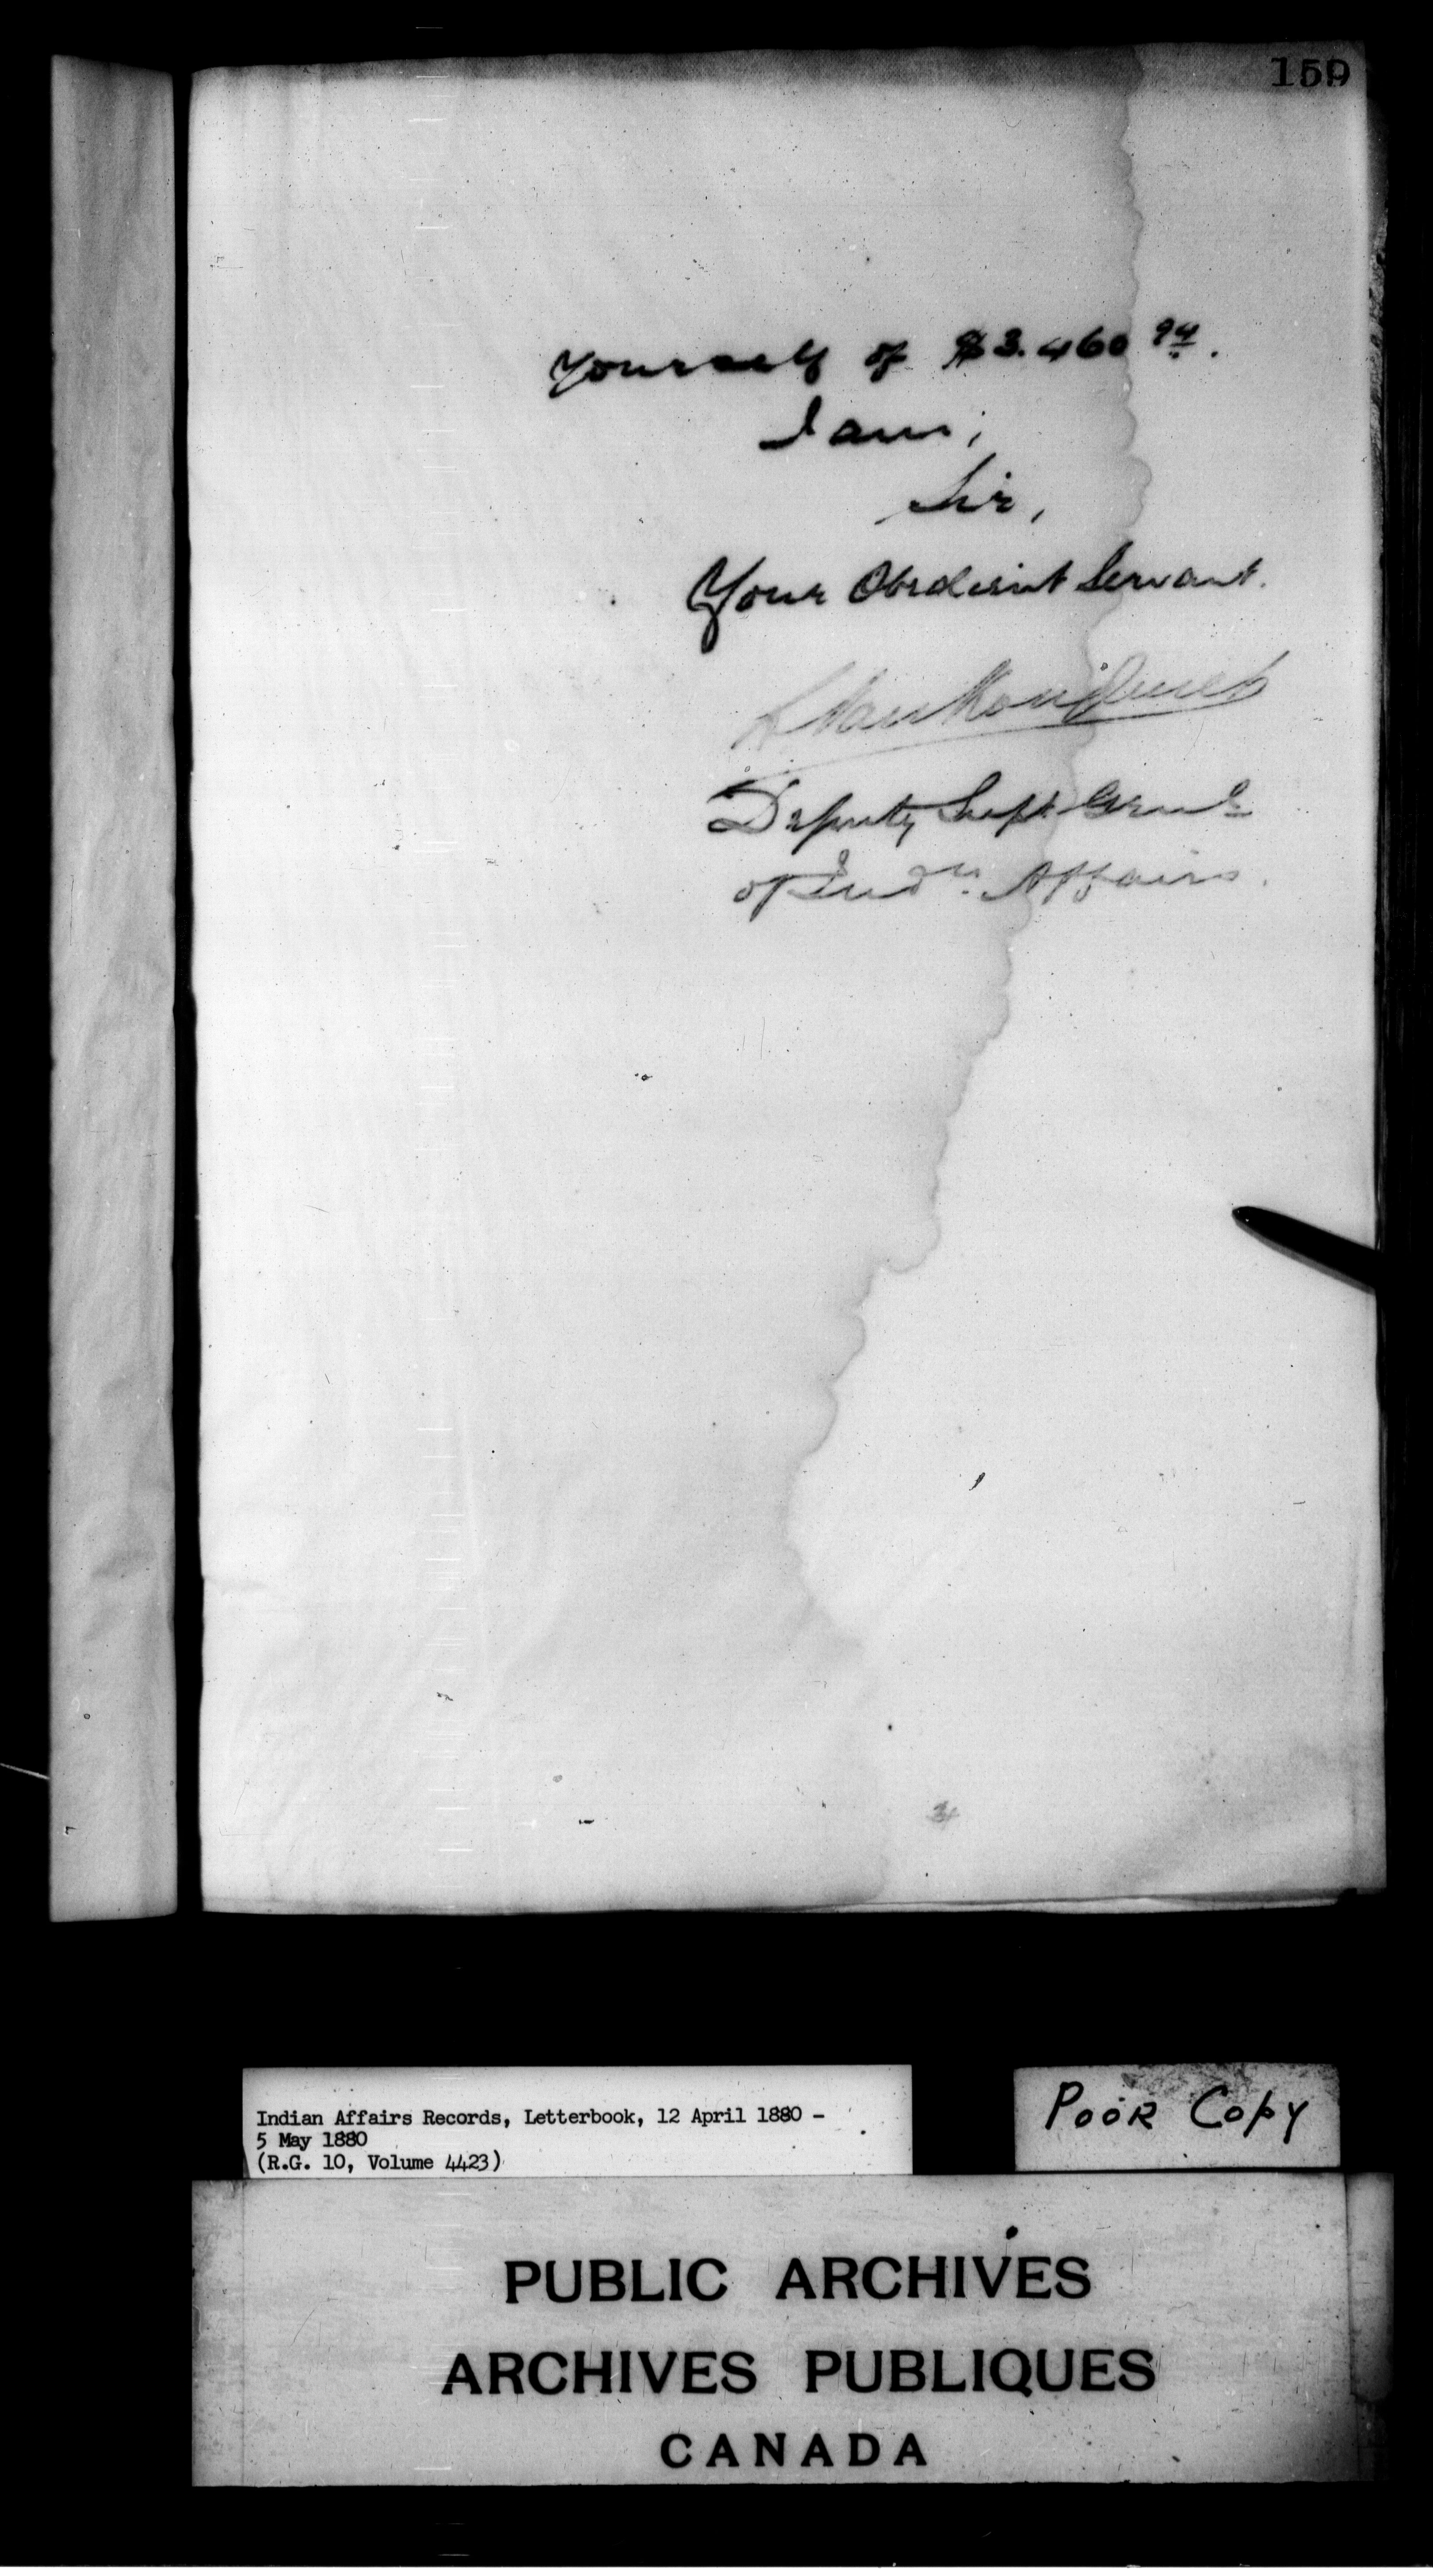 159
yourself of $3.460 94.
I am,
Sir,
Your Obedient Servant.
L VanKoughnet
Deputy Supt. Genl
of Indn. Affairs.
Indian Affairs Records, Letterbook, 12 April 1880 -
5 May 1880
(R.G. 10, Volume 4423)
POOR COPY
PUBLIC ARCHIVES
ARCHIVES PUBLIQUES
CANADA